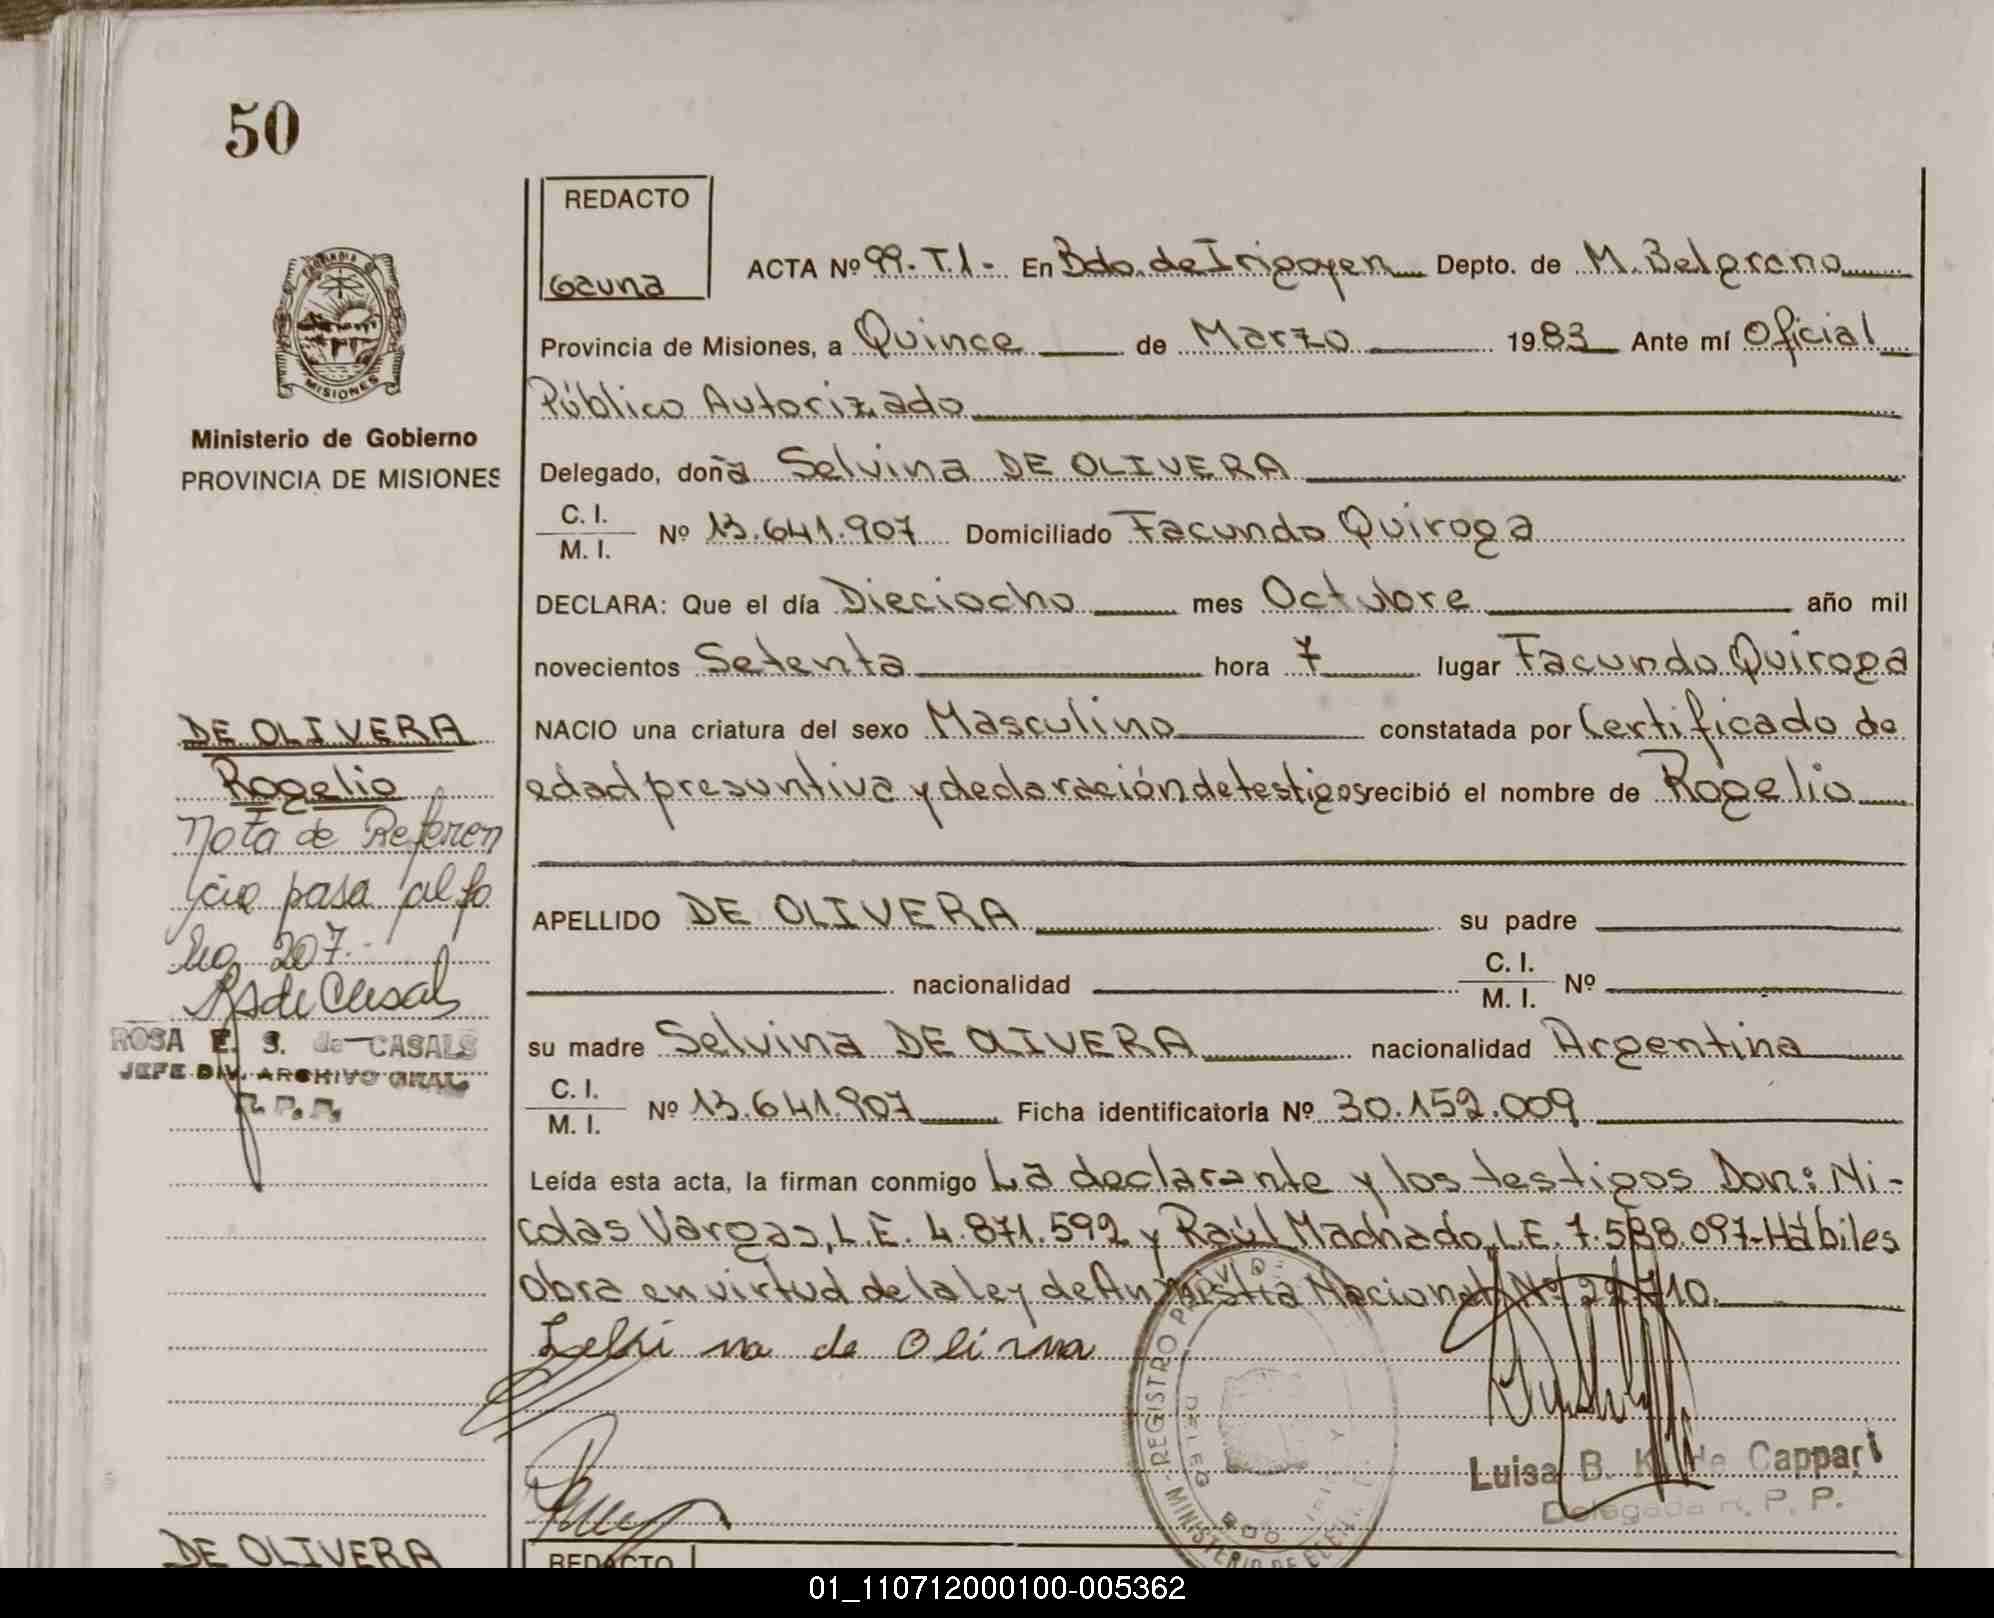 50
REDACTO
acuna
ACTA Nº 99-T.1- En Bdo. de Irigoyen Depto. de M. Belgrano
Provincia de Misiones, a Quince de Marzo 1983 Ante mí Oficial
Público Autorizado
MISIONES
Ministerio de Gobierno
PROVINCIA DE MISIONES
Delegado, doña Selvina DE OLIVERA
C. I.
M. I. Nº 13.641.907 Domiciliado Facundo Quiroga
DECLARA: Que el día Dieciocho mes Octubre año mil
novecientos Setenta hora 7 lugar Facundo Quiroga
NACIO una criatura del sexo Masculino constatada por Certificado de
edad presuntiva y declaración de testigos recibió el nombre de Rogelio
APELLIDO DE OLIVERA su padre
nacionalidad C. I.
M. I. Nº
su madre Selvina DE OLIVERA nacionalidad Argentina
C. I.
M. I. Nº 13.641.907 Ficha identificatoria Nº 30.152.009
Leída esta acta, la firman conmigo La declarante y los testigos Don: Ni-
colas Vargas, L.E. 4.871.592 y Raúl Machado, L.E. 7.588.097-Hábiles
Obra en virtud de la ley de Amnistia Nacional Nº 22.710.
DE OLIVERA
Rogelio
Nota de Referen
cia pasa al fo
lio 207.
ROSA E. S. de CASALS
JEFE DIV. ARCHIVO GRAL.
R. P. P.
Selvi na de Oli
REGISTRO
MINISTERIO DE
Luisa B. K. de Cappari
Delegada R. P. P.
DE OLIVERA
REDACTO
01_110712000100-005362